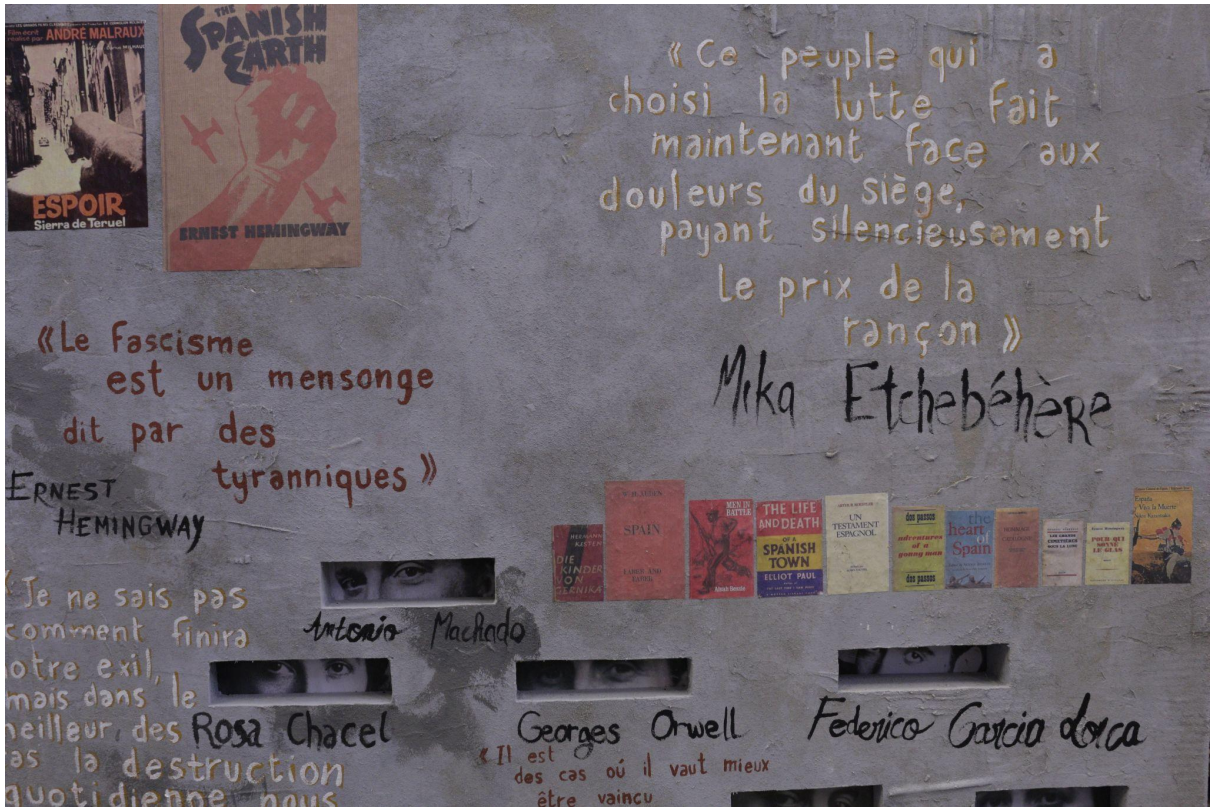 ANDRÉ MALRAUX
ESPOIR
Sierra de Teruel
THE
SPANISH
EARTH
ERNEST HEMINGWAY
« Ce peuple qui a
choisi la lutte fait
maintenant face aux
douleurs du siège,
payant silencieusement
Le prix de la
rançon »
Mika Etchebéhère
« Le Fascisme
est un mensonge
dit par des
tyranniques »
ERNEST
HEMINGWAY
DIE
KINDER
VON
GERNIKA
SPAIN
MEN IN
BATTLE
THE LIFE
AND DEATH
OF A
SPANISH
TOWN
ELLIOT PAUL
UN
TESTAMENT
ESPAGNOL
dos passos
adventures
of a
young man
dos passos
the
heart
of
Spain
LES GRANDS
CIMETIÈRES
SOUS LA LUNE
POUR QUI
SONNE
LE GLAS
España
Viva la Muerte
Antonio Machado
« Je ne sais pas
comment finira
otre exil,
mais dans le
eilleur des
as la destruction
quotidienne nous
Rosa Chacel
Georges Orwell
Federico Garcia Lorca
« Il est
des cas oú il vaut mieux
être vaincu